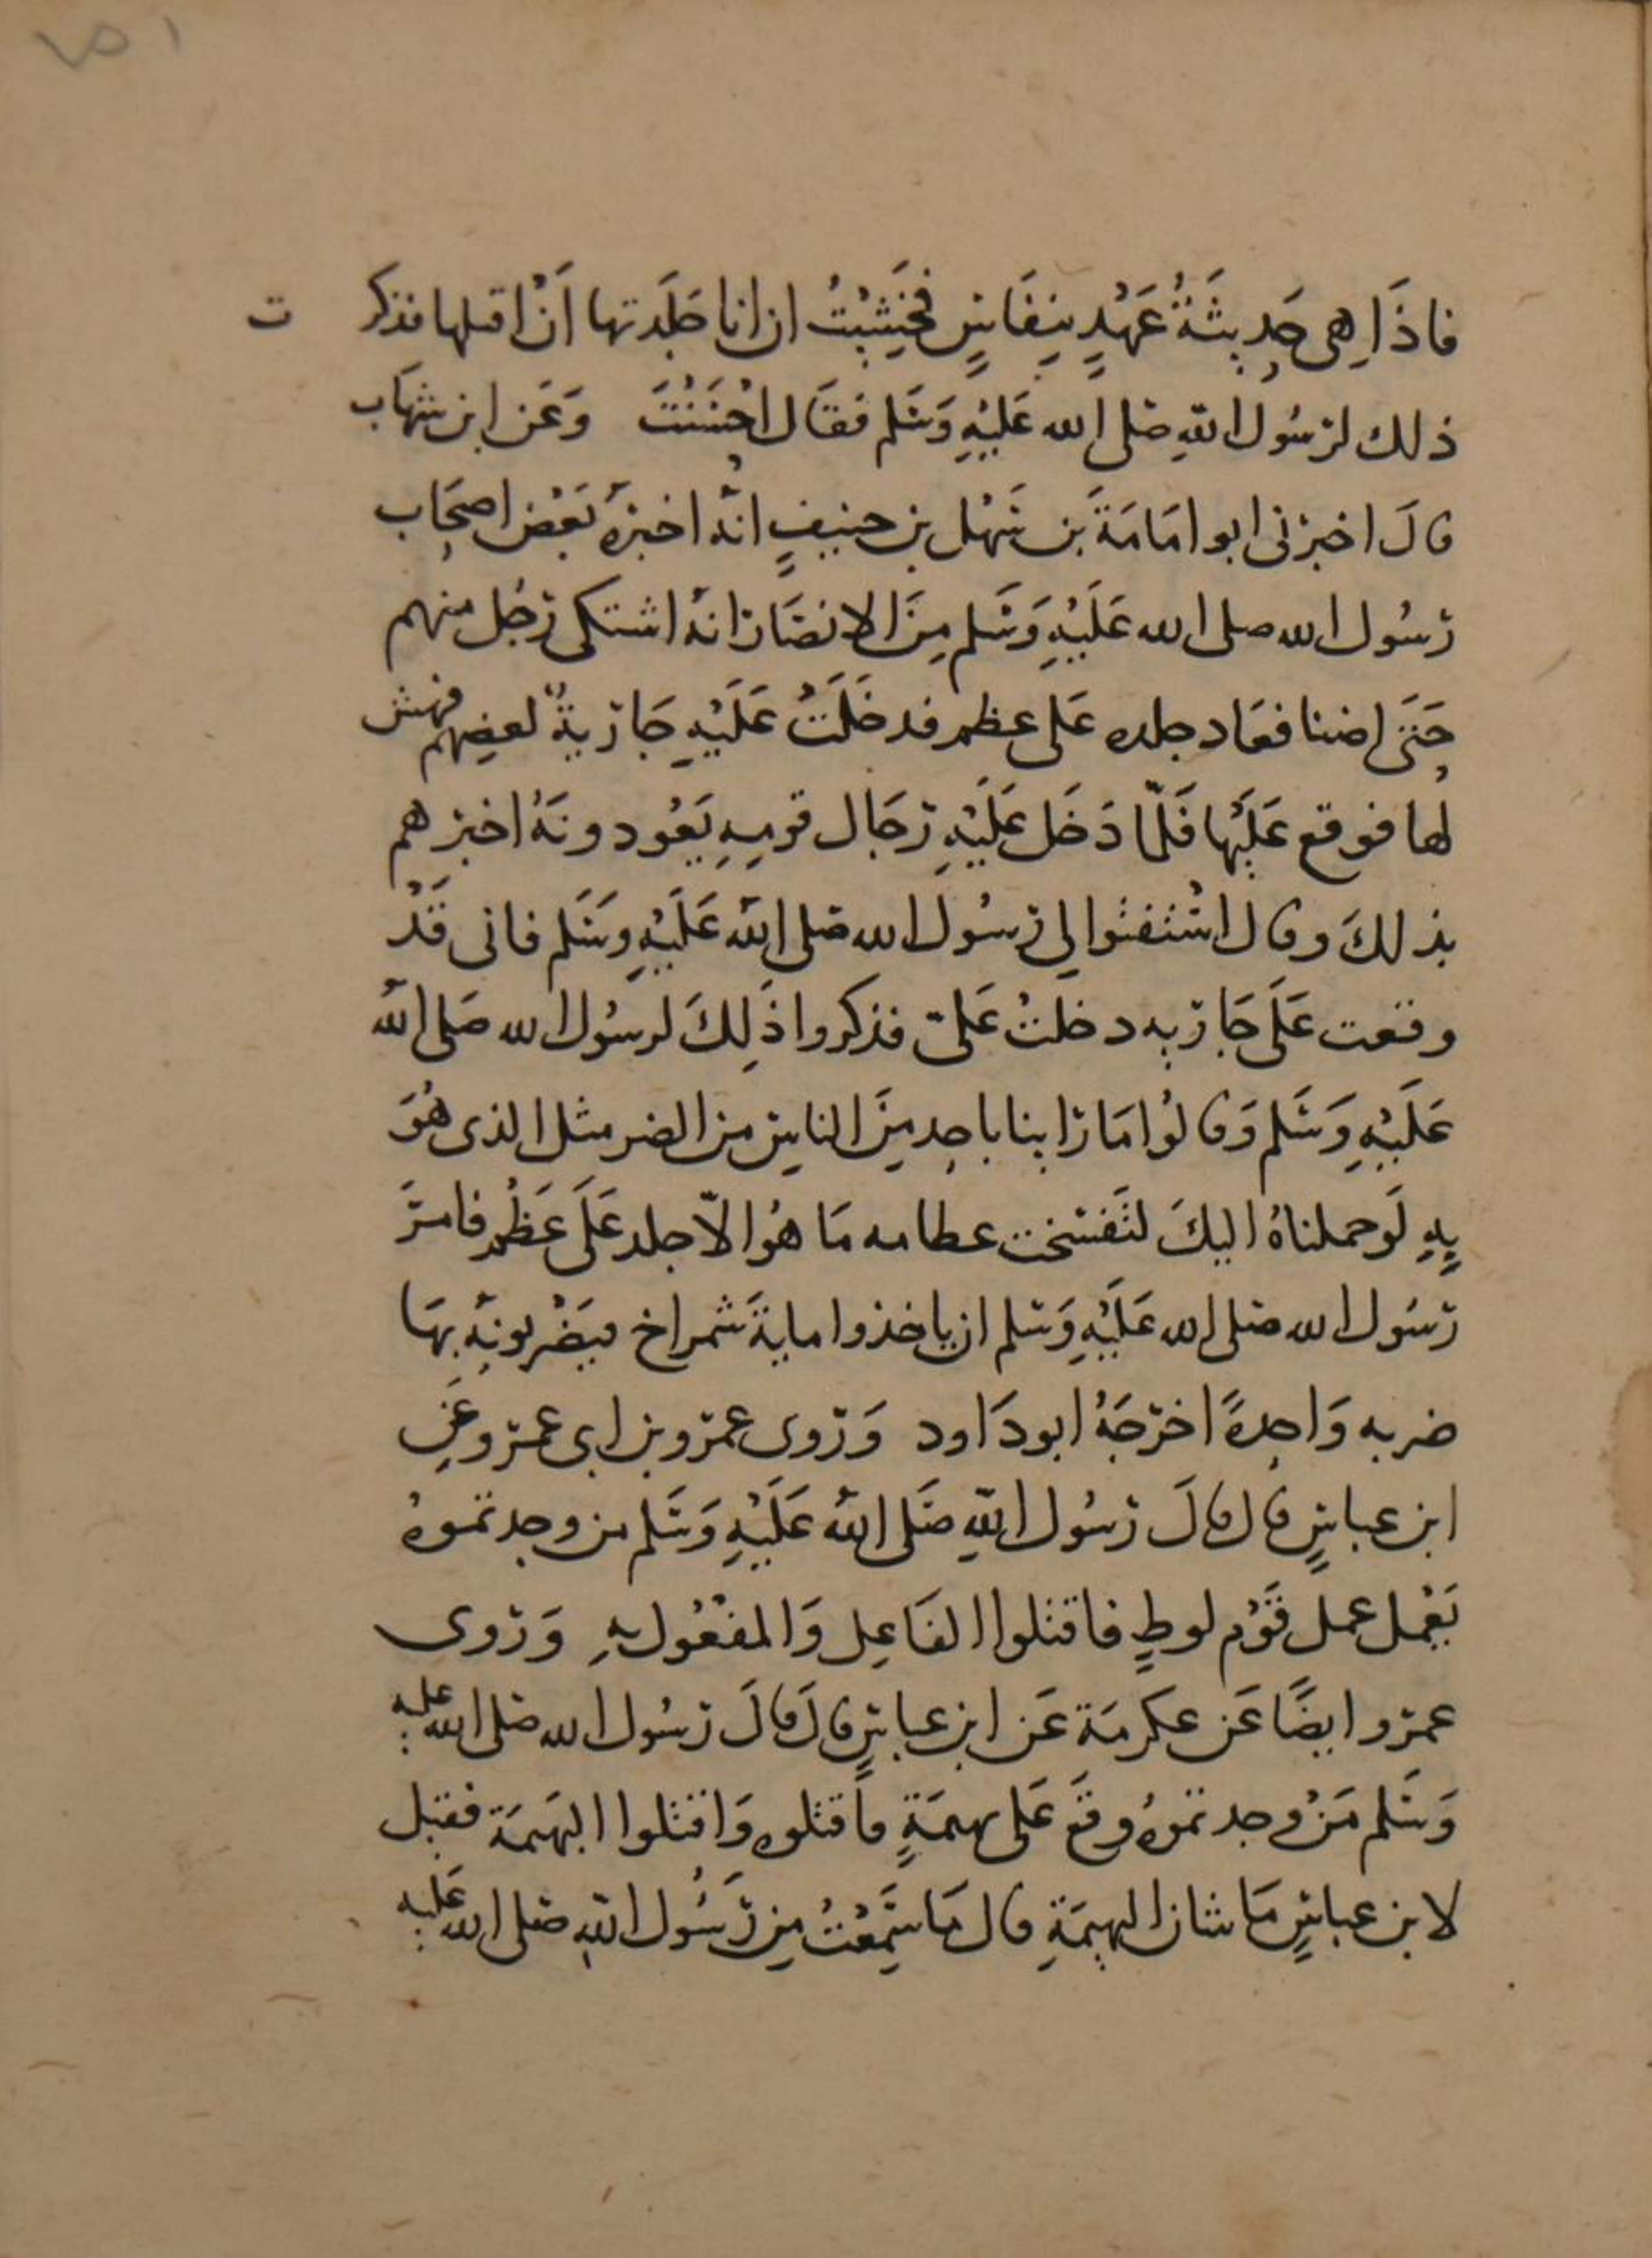 فاذَا هِى حَدِيثَةُ عَهْدٍ بنِفَاسٍ فخَشِيْتُ ان انا جَلَدتها اَنْ اقتلها فذكرت
ذلك لرسُول اللهِ صَلى الله عَلَيْهِ وَسَلم فقَال احْسَنْتَ وَعَن ابن شهَاب
قالَ اخبرنى ابو امَامَةَ بن سَهْل بن حنيفٍ انه اخبرهُ بَعْض اصحَاب
رَسُول الله صلى الله عَلَيْهِ وَسَلم مِنَ الانصَار انهُ اشتكى رَجُل منهم
حَتى اضنا فعَاد جلده عَلى عظم فدخَلَتْ عَلَيْهِ جَاريةٌ لبعضِهم فهش
لها فوقع عَلَيْها فَلَمّا دَخَل عَلَيْهِ رجَال قومِهِ يَعُودونَهُ اخبرهم
بذلكَ وقال اسْتفتوا لى رسُول الله صَلى اللهُ عَلَيْهِ وسَلم فانى قَدْ
وقعت عَلَى جَاريه دخلتْ عَلىّ فذكروا ذَلِكَ لرسُول الله صَلى اللهُ
عَلَيْهِ وَسَلم وَقالوُا مَا رَاينا باحدٍ مِنَ الناسِ من الضر مثل الذى هُوَ
بِهِ لَو حملناهُ اليكَ لتَفسَّخت عظامه مَا هُوَ الاّ جلد عَلَى عَظْم فامَرَ
رَسُول الله صَلى الله عَلَيْهِ وَسَلم ان ياخذوا مايةَ شمراخ فيَضْربونهُ بهَا
ضربه وَاحِدةً اخرَجَهُ ابو دَاود وَرَوى عمرَو بن ابى عمرو عَنِ
ابن عباسٍ قال قالَ رَسُول اللهِ صَلَى اللهُ عَلَيْهِ وَسَلم من وجدتموهُ
يَعْمل عمل قَوْم لوطٍ فاقتلوا الفَاعِل وَالمفْعُول بِهِ وَرَوى
عمرَو ايضًا عَن عكرمَة عَن ابن عباسٍ قالَ قالَ رَسُول الله صَلى الله عليه
وَسَلم مَنْ وجدتموهُ وقَعَ عَلى بهيمَةٍ فاقتلوه وَاقتلوا البهيمَة فقيل
لابن عباسٍ مَا شان البهيمَةِ قال مَا سَمِعْتُ مِن رَسُول اللهِ صَلى الله عَليه